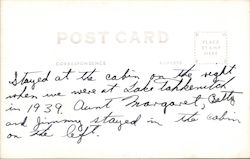 POST CARD
CORRESPONDENCE
ADDRESS
PLACE
STAMP
HERE
Stayed at the cabin on the right
when we were at Lake Tahkenitch
in 1939. Aunt Margaret, Betty
and Jimmy stayed in the cabin
on the left.